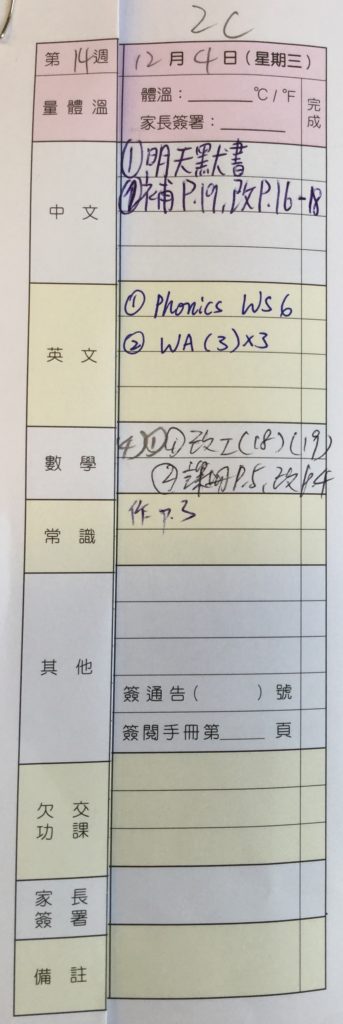 2C
第14週 12月4日(星期三)
量體溫 體溫：______°C/°F 完成
家長簽署：______
中文 ①明天默書
②補P.19,改P.16-18
英文 ① Phonics WS 6
② WA (3)×3
數學 ①改工(18)(19)
②課堂P.5,改P.4
常識 作p.3
其他
簽通告( )號
簽閱手冊第____頁
欠交功課
家長簽署
備註